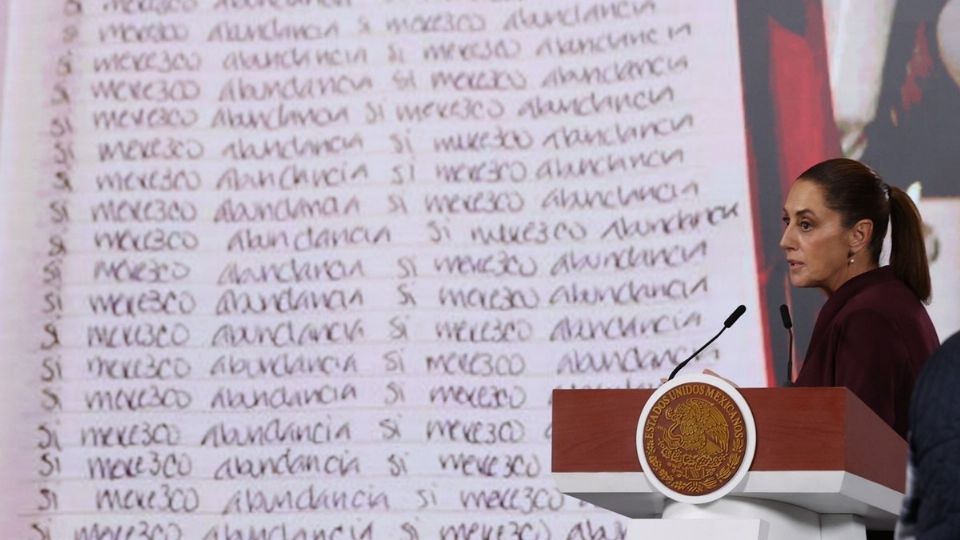 si merezco abundancia si merezco abundancia
si merezco abundancia si merezco abundancia
si merezco abundancia si merezco abundancia
si merezco abundancia si merezco abundancia
si merezco abundancia si merezco abundancia
si merezco abundancia si merezco abundancia
si merezco abundancia si merezco abundancia
si merezco abundancia si merezco abundancia
si merezco abundancia si merezco abundancia
si merezco abundancia si merezco abundancia
si merezco abundancia si merezco abundancia
si merezco abundancia si merezco abundancia
si merezco abundancia si merezco
si merezco abundancia si merezco
si merezco abundancia si merezco
si merezco abundancia si merezco
si merezco abundancia si merezco abundancia
ESTADOS UNIDOS MEXICANOS